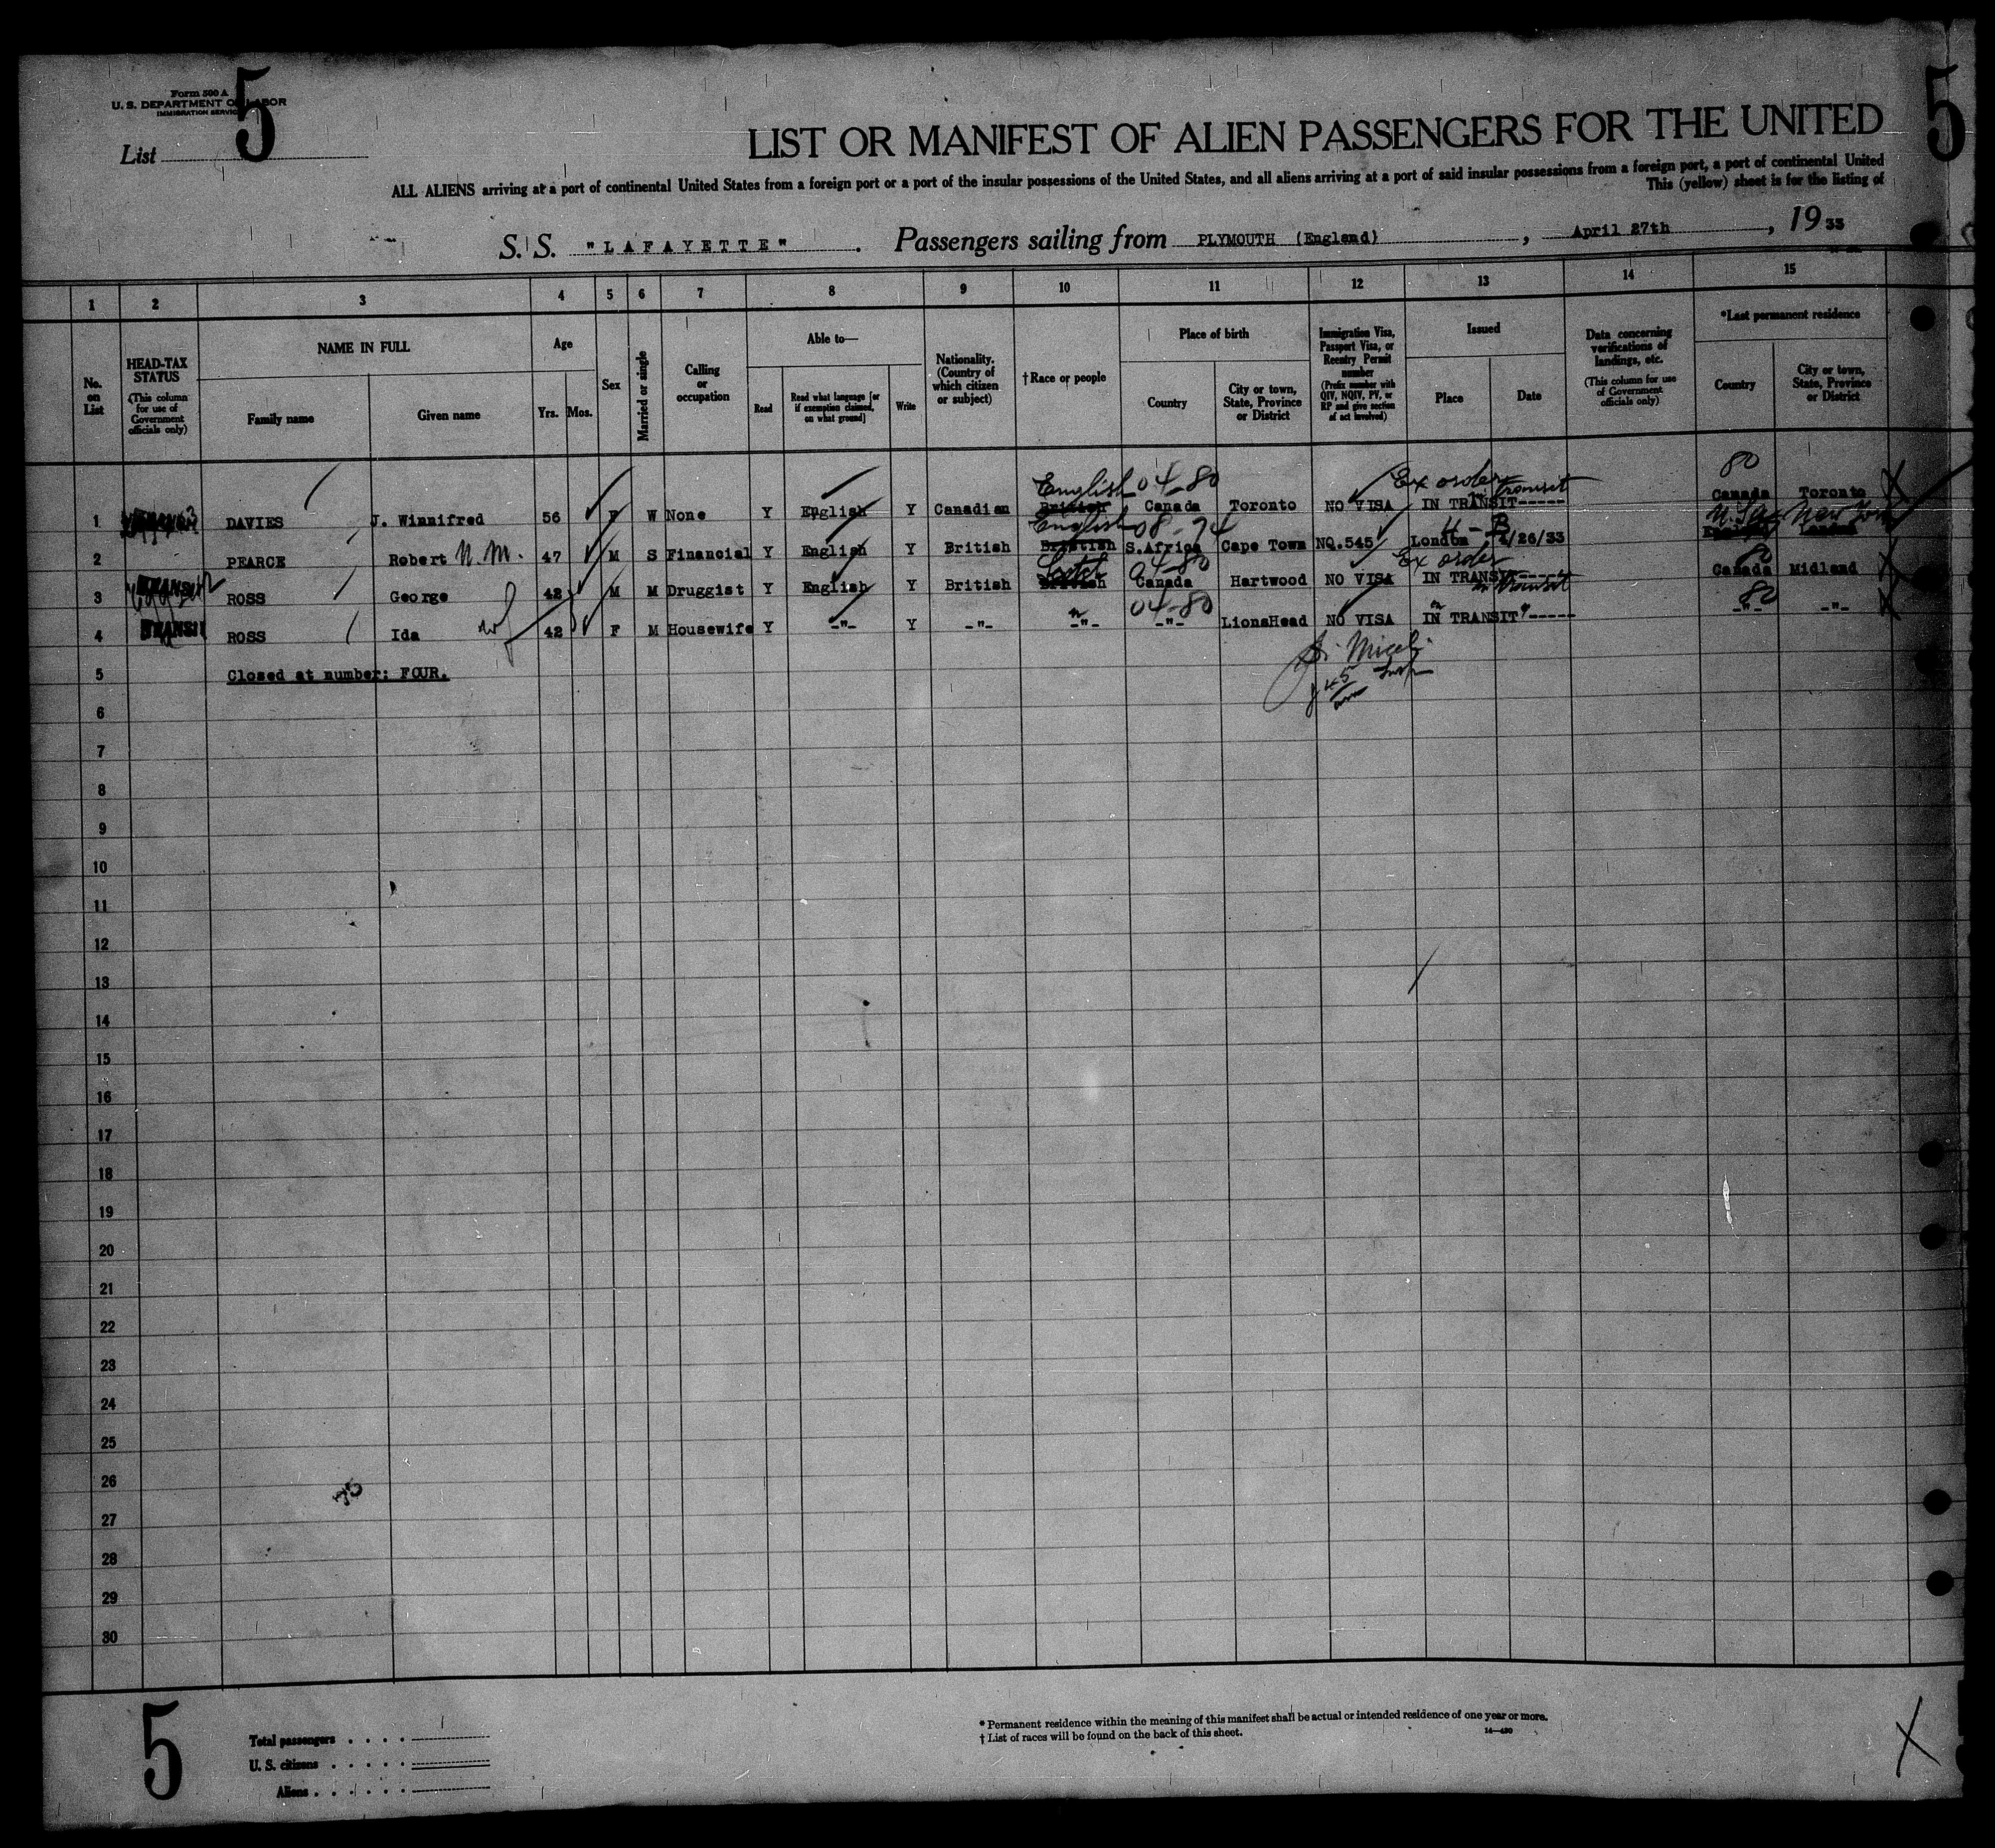 Form 500 A
U. S. DEPARTMENT OF LABOR
IMMIGRATION SERVICE
List 5
5
LIST OR MANIFEST OF ALIEN PASSENGERS FOR THE UNITED
ALL ALIENS arriving at a port of continental United States from a foreign port or a port of the insular possessions of the United States, and all aliens arriving at a port of said insular possessions from a foreign port, a port of continental United
This (yellow) sheet is for the listing of
S. S. "LAFAYETTE" . Passengers sailing from PLYMOUTH (England) , April 27th , 19 33
1 2 3 4 5 6 7 8 9 10 11 12 13 14 15
No. on List
HEAD-TAX STATUS
(This column for use of Government officials only)
NAME IN FULL
Family name Given name
Age
Yrs. Mos.
Sex
Married or single
Calling or occupation
Able to—
Read Read what language [or if exemption claimed, on what ground] Write
Nationality. (Country of which citizen or subject)
†Race or people
Place of birth
Country City or town, State, Province or District
Immigration Visa, Passport Visa, or Reentry Permit number
(Prefix number with QIV, NQIV, PV, or RP and give section of act involved)
Issued
Place Date
Data concerning verifications of landings, etc.
(This column for use of Government officials only)
*Last permanent residence
Country City or town, State, Province or District
English 04-80 Ex order in transit 80
1 DAVIES J. Winnifred 56 F W None Y English Y Canadian British Canada Toronto NO VISA IN TRANSIT----- Canada Toronto
English 08-74 4-B New York
2 PEARCE Robert N.M. 47 M S Financial Y English Y British British S.Africa Cape Town NQ.545 London 4/26/33 London
Scotch 04-80 Ex order in transit 80
3 TRANSIT ROSS George 42 M M Druggist Y English Y British British Canada Hartwood NO VISA IN TRANSIT----- Canada Midland
" 04-80 " " 80
4 TRANSIT ROSS Ida wf 42 F M Housewife Y -"- Y -"- -"- -"- LionsHead NO VISA IN TRANSIT----- -"- -"-
5 Closed at number: FOUR.
6
7
8
9
10
11
12
13
14
15
16
17
18
19
20
21
22
23
24
25
26
27
28
29
30
5
Total passengers
U. S. citizens
Aliens
* Permanent residence within the meaning of this manifest shall be actual or intended residence of one year or more.
† List of races will be found on the back of this sheet.
14—430